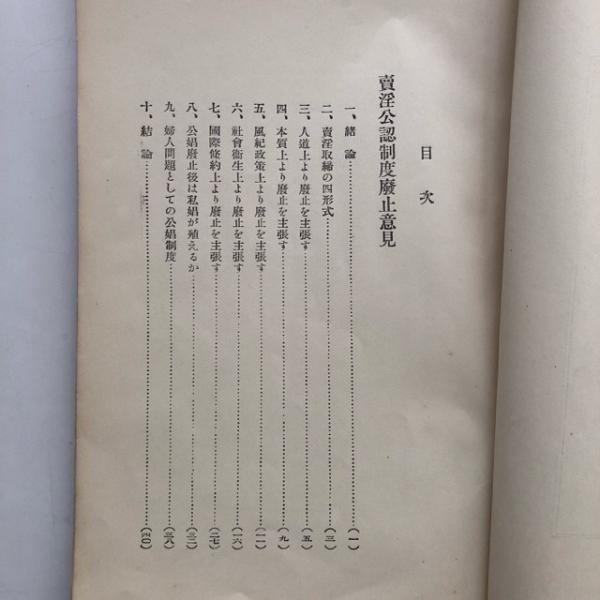 目次
賣淫公認制度廢止意見
一、緒論……(一)
二、賣淫取締の四形式……(三)
三、人道上より廢止を主張す……(五)
四、本質上より廢止を主張す……(九)
五、風紀政策上より廢止を主張す……(一一)
六、社會衞生上より廢止を主張す……(一六)
七、國際條約上より廢止を主張す……(二七)
八、公娼廢止後は私娼が殖えるか……(三二)
九、婦人問題としての公娼制度……(三八)
十、結論……(四〇)